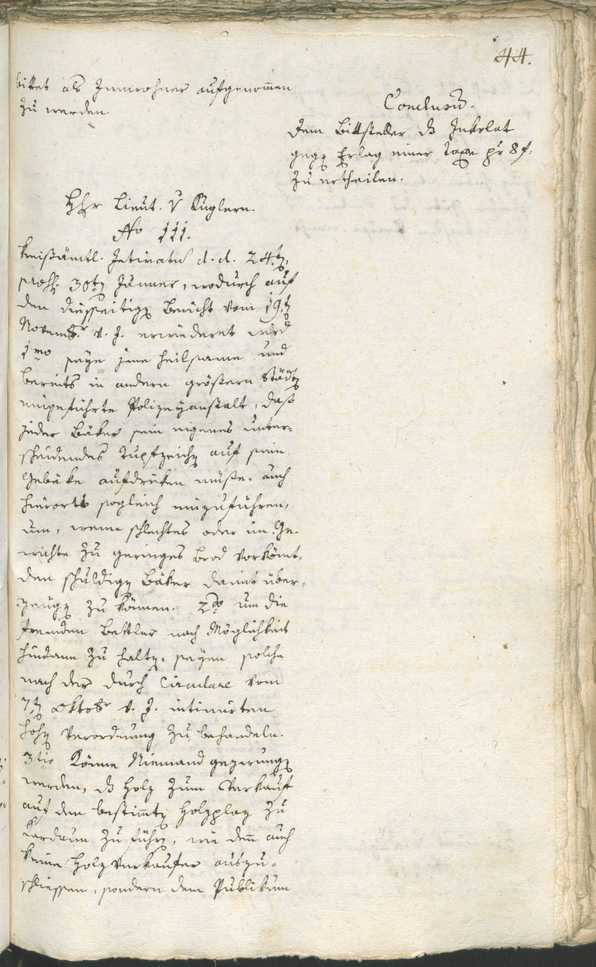 44.
bittet als Innwohner aufgenom̅en
zu werden.
Conclusum.
Dem Bittsteller das Inkolat
gegen Erlag einer Taxe pr 8 f.
zu ertheilen.
Hr Lieut. v Kuglern.
No 111.
Kreisämtl. Intimatum d. d. 24ten,
praes. 30ten Jänner, wodurch auf
den diesseitigen Bericht vom 19ten
Novembr v. J. erwiederet wird
1mo seye jene heilsame und
bereits in andern größern Städten
eingeführte Polizeyanstalt, daß
jeder Bäker sein eigenes unter-
scheidendes Tupfzeichen auf sein
Gebäke aufdrüken müße, auch
hierorts sogleich einzuführen,
um, wenn schlechtes oder im Ge-
wichte zu geringes Brod vorkömt,
den schuldigen Bäker damit über-
zeugen zu können. 2do um die
fremden Bettler nach Möglichkeit
hindann zu halten, seyen solche
nach der durch Circulare vom
7ten Oktobr v. J. intimirten
hohen Verordnung zu behandeln.
3tio Könne Niemand gezwungen
werden, das Holz zum Verkauf
auf den bestimten Holzplaz zu
Kardaun zu führen, wie den̅ auch
keine Holzverkaufer auszu-
schliessen, sondern dem Publikum